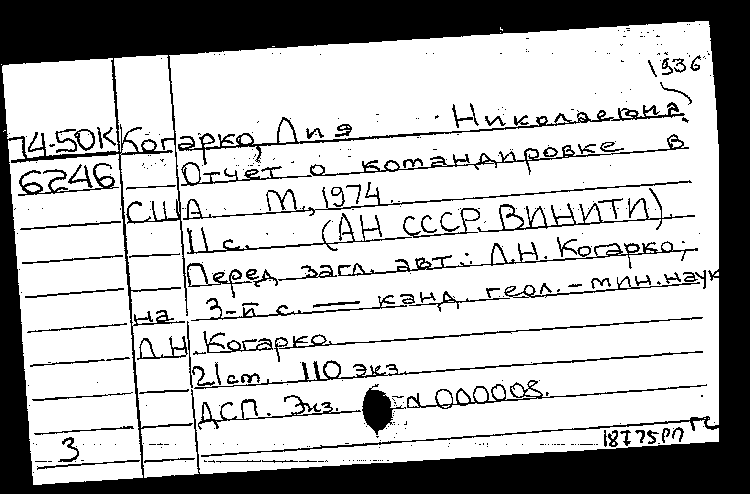 1936
74-50К Когарко, Лия Николаевна.
6246 Отчет о командировке в
США. М., 1974.
11 с. (АН СССР. ВИНИТИ).
Перед загл. авт.: Л.Н. Когарко;
на 3-й с. — канд. геол.-мин. наук
Л.Н. Когарко.
21 см. 110 экз.
ДСП. Экз. N 000008.
3